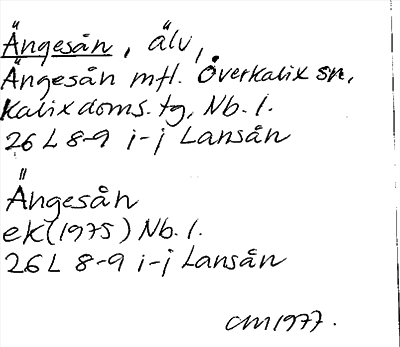 Ängesån, älv,
Ängesån mfl. Överkalix sn,
Kalix doms. tg, Nb. l.
26 L 8-9 i-j Lansån
Ängesån
ek (1975) Nb. l.
26 L 8-9 i-j Lansån
CM 1977.